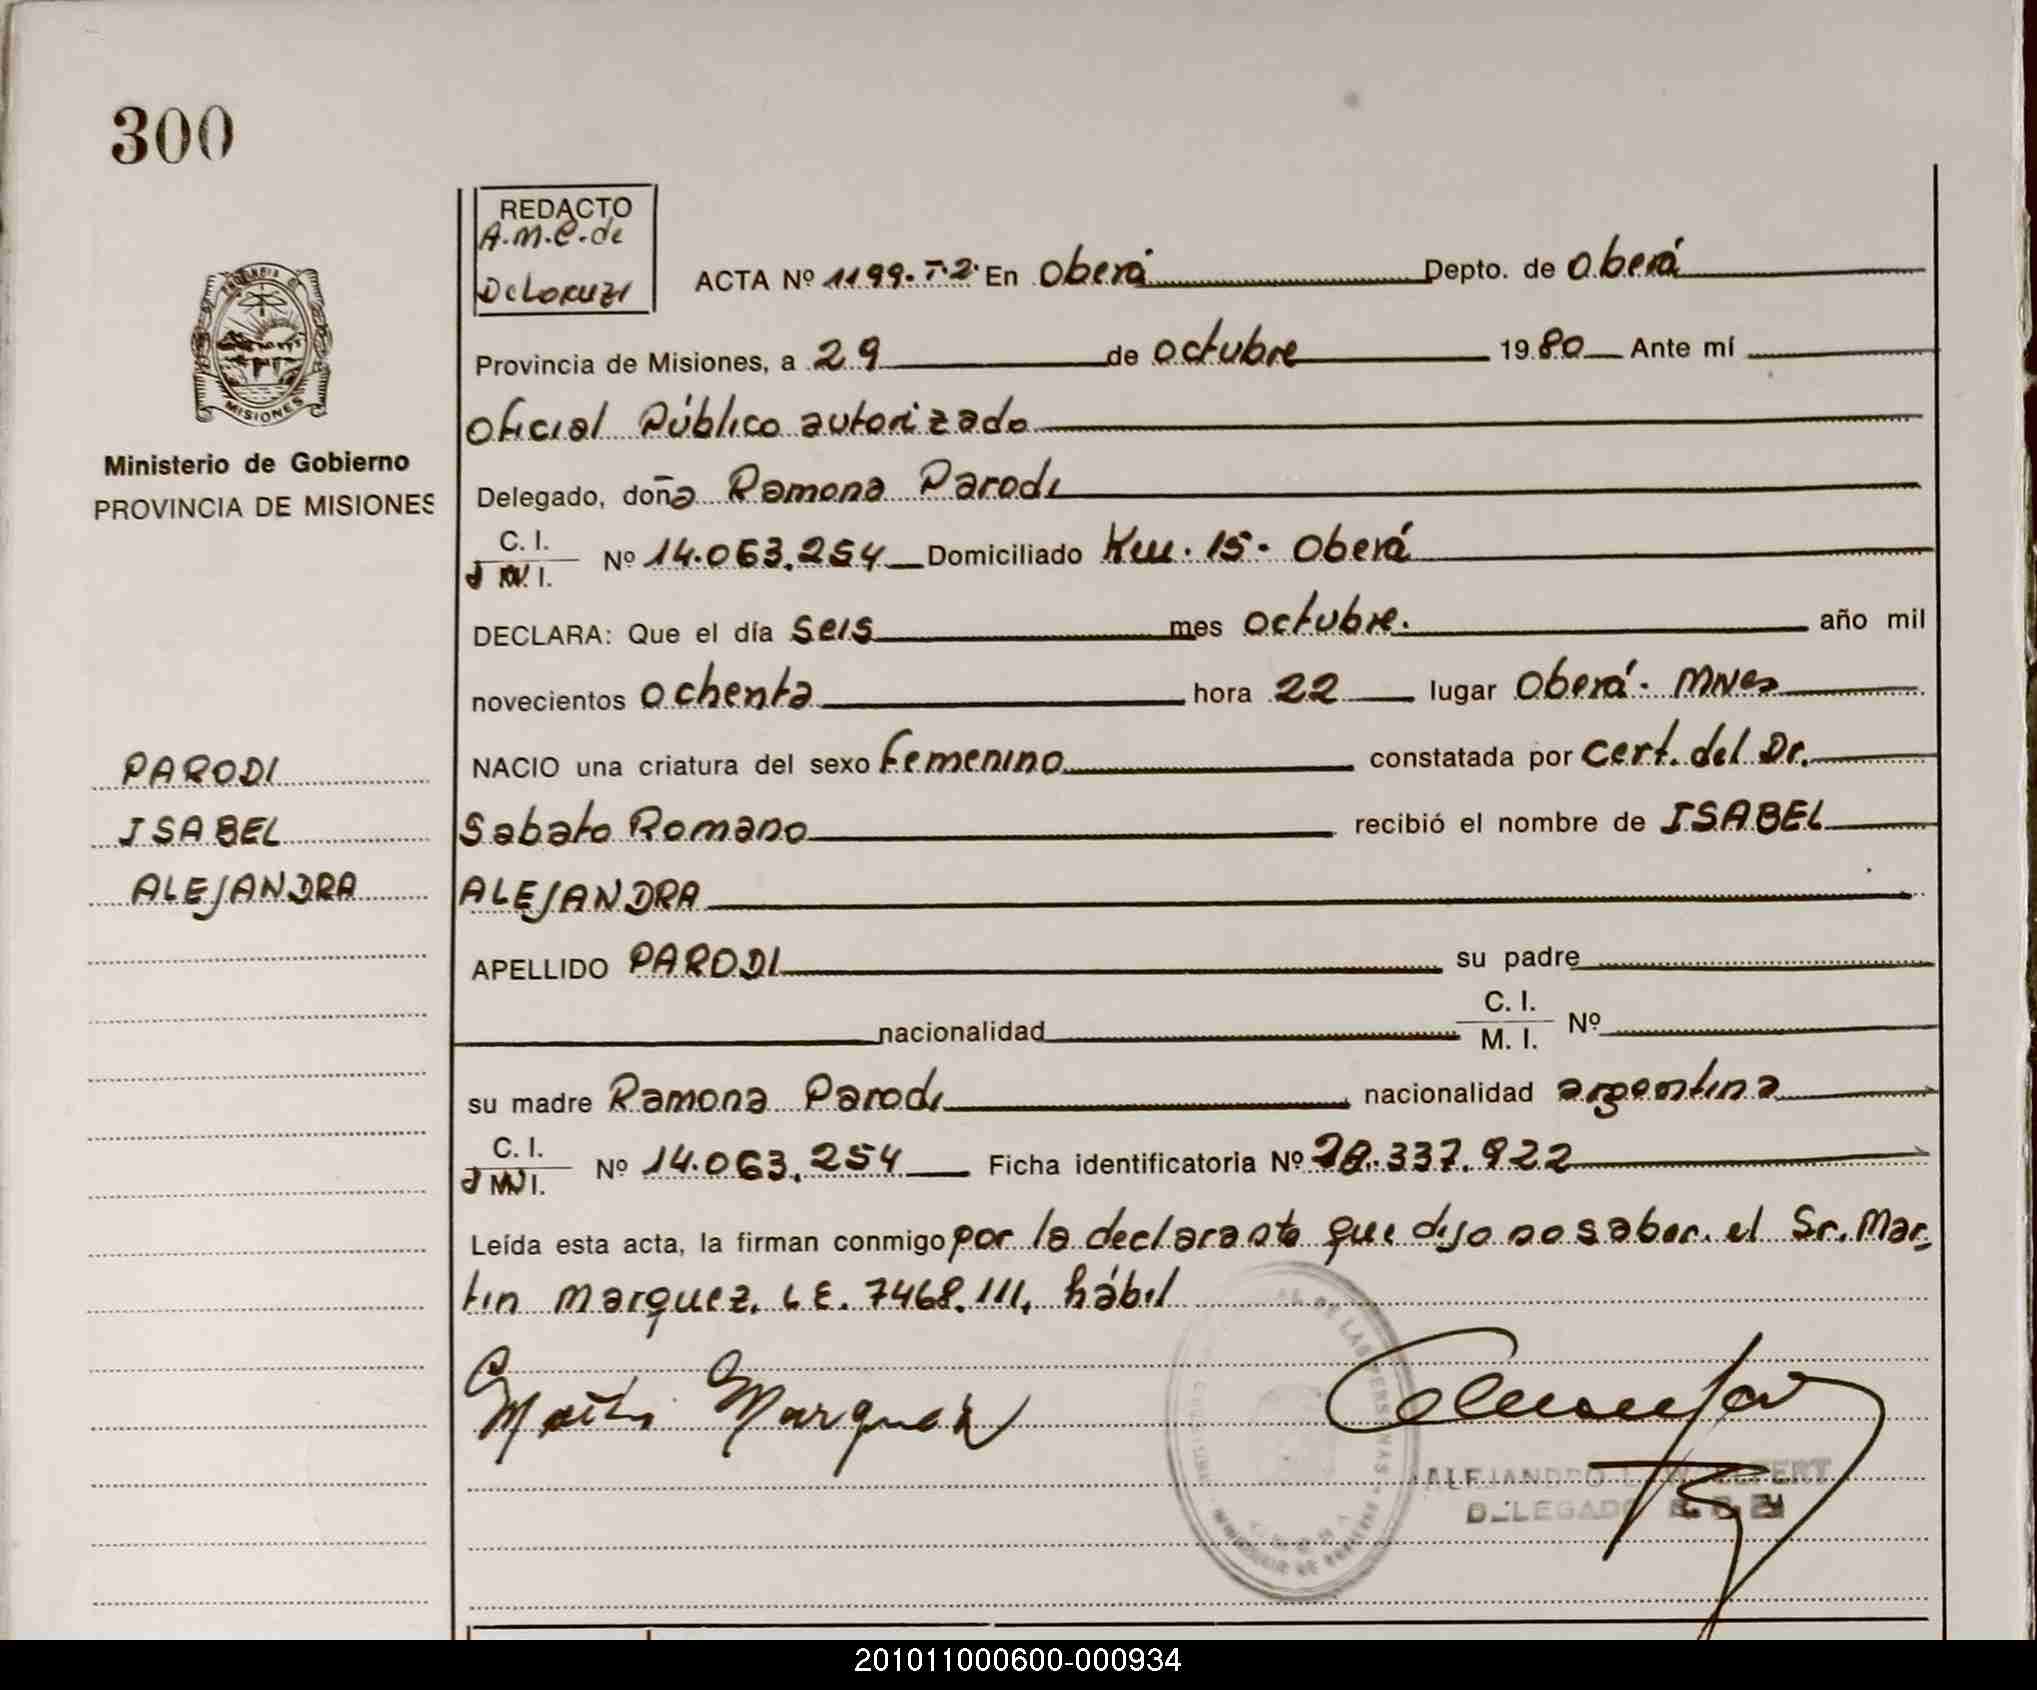 300
REDACTO
A.M.C. de
ACTA Nº 1199-T2. En Oberá Depto. de Oberá
Provincia de Misiones, a 29 de octubre 1980 Ante mí
Oficial Público autorizado
MISIONES
Ministerio de Gobierno
PROVINCIA DE MISIONES
Delegado, doña Ramona Parodi
C. I.
Nº 14.063.254 Domiciliado Km. 15- Oberá
DECLARA: Que el día seis mes octubre. año mil
novecientos ochenta hora 22 lugar Oberá. Mnes
PARODI
ISABEL
ALEJANDRA
NACIO una criatura del sexo femenino constatada por cert. del Dr.
Sabato Romano recibió el nombre de ISABEL
ALEJANDRA
APELLIDO PARODI su padre
nacionalidad C. I. M. I. Nº
su madre Ramona Parodi nacionalidad argentina
C. I.
Nº 14.063.254 Ficha identificatoria Nº 28.337.922
Leída esta acta, la firman conmigo por la declarante que dijo no saber. el Sr. Mar-
tin Marquez. L E. 7468.111, hábil
Martin Marquez
DE LAS PERSONAS
ALEJANDRO
DELEGADO
201011000600-000934